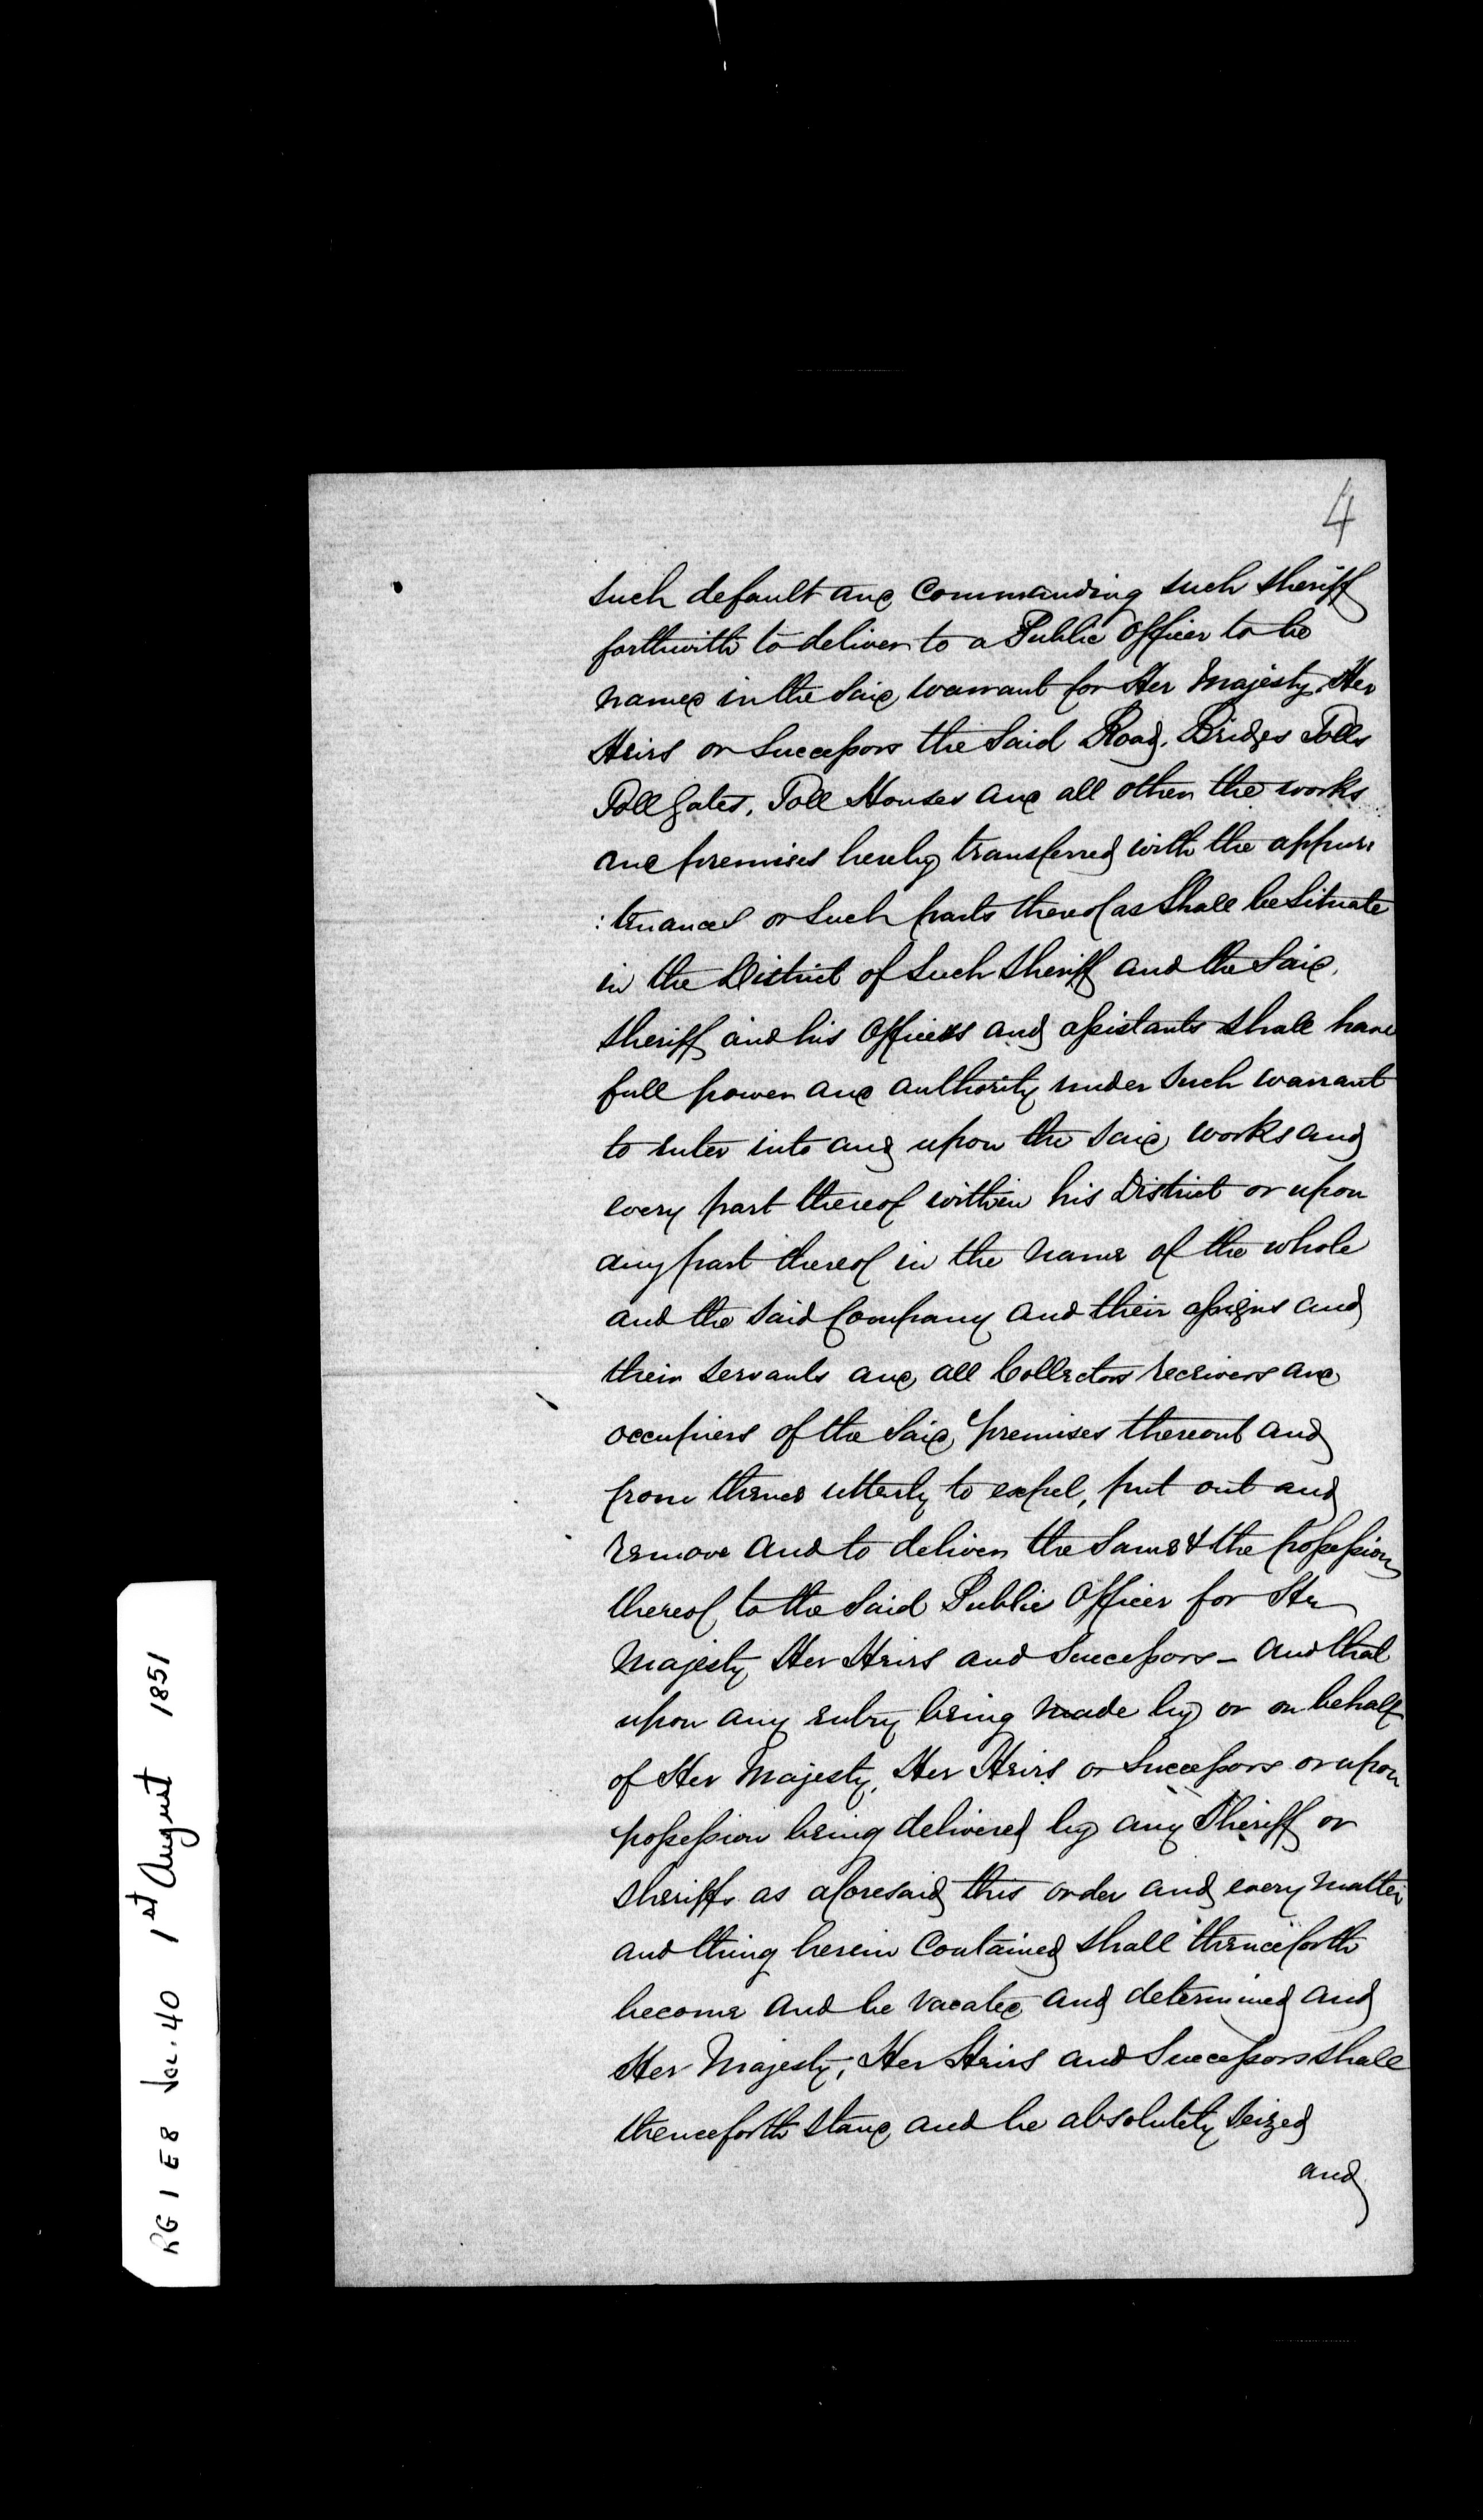 4
such default and Commanding such Sheriff
forthwith to deliver to a Public Officer to be
named in the said warrant for Her Majesty, Her
Heirs or Successors the said Road, Bridges Tolls
Toll gates, Toll Houses and all other the works
and premises hereby transferred with the appur
: tenances or such parts thereof as shall be situate
in the District of such Sheriff and the said
Sheriff and his Officers and assistants shall have
full power and authority under such warrant
to enter into and upon the said works and
every part thereof within his District or upon
any part thereof in the name of the whole
and the said Company and their assigns and
their servants and all Collectors receivers and
occupiers of the said premises thereout and
from thence utterly to expel, put out and
remove and to deliver the same & the possession
thereof to the said Public Officer for Her
Majesty Her Heirs and Successors - and that
upon any entry being made by or on behalf
of Her Majesty, Her Heirs or Successors or upon
possession being delivered by any Sheriff or
Sheriffs as aforesaid this order and every matter
and thing herein Contained shall thenceforth
become and be vacated and determined and
Her Majesty, Her Heirs and Successors shall
thenceforth stand and be absolutely seized
and
RG 1 E 8 Vol. 40 1st August 1851